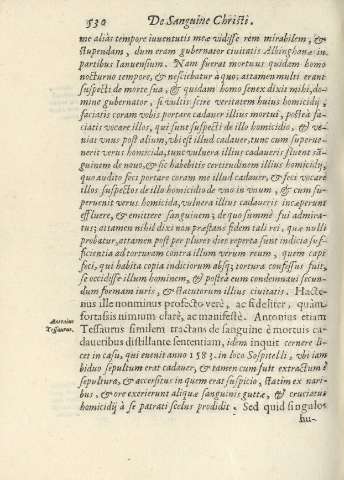 530 De Sanguine Christi.
me aliàs tempore iuuentutis meæ vidisse rem mirabilem, &
stupendam, dum eram gubernator ciuitatis Albinganæ in
partibus Ianuensium. Nam fuerat mortuus quidam homo
nocturno tempore, & nesciebatur à quo: attamen multi erant
suspecti de morte sua; & quidam homo senex dixit mihi, do-
mine gubernator, si vultis scire veritatem huius homicidij,
faciatis coram vobis portare cadauer illius mortui, posteà fa-
ciatis vocare illos, qui sunt suspecti de illo homicidio, & ve-
niat vnus post alium, vbi est illud cadauer, tunc cum superue-
nerit verus homicida, tunc vulnera illius cadaueris fluent sã-
guinem de nouo, & sic habebitis certitudinem illius homicidij,
quo audito feci portare coram me illud cadauer, & feci vocare
illos suspectos de illo homicidio de vno in vnum, & cum su-
peruenit verus homicida, vulnera illius cadaueris inceperunt
effluere, & emittere sanguinem; de quo summè fui admira-
tus; attamen nihil dixi non præstans fidem tali rei, quæ nulli
probatur, attamen post per plures dies reperta sunt indicia suf-
ficientia ad torturam contra illum verum reum, quem capi
feci, qui habita copia indiciorum absq; tortura confessus fuit,
se occidisse illum hominem, & posteà eum condemnaui secun-
dum formam iuris, & statutorum illius ciuitatis. Hacte-
nus ille nonminus profectò verè, ac fideliter, quàm
fortassis nimium clarè, ac manifestè. Antonius etiam
Antonius
Tessaurus.
Tessaurus similem tractans de sanguine è mortuis ca-
daueribus distillante sententiam, idem inquit cernere li-
cet in casu, qui euenit anno 1583. in loco Sospitelli, vbi iam
biduo sepultum erat cadauer, & tamen cum fuit extractum è
sepultura, & accersitus in quem erat suspicio, statim ex nari-
bus, & ore exierunt aliquæ sanguinis guttæ, & cruciatus
homicidij à se patrati scelus prodidit. Sed quid singulos
hu-